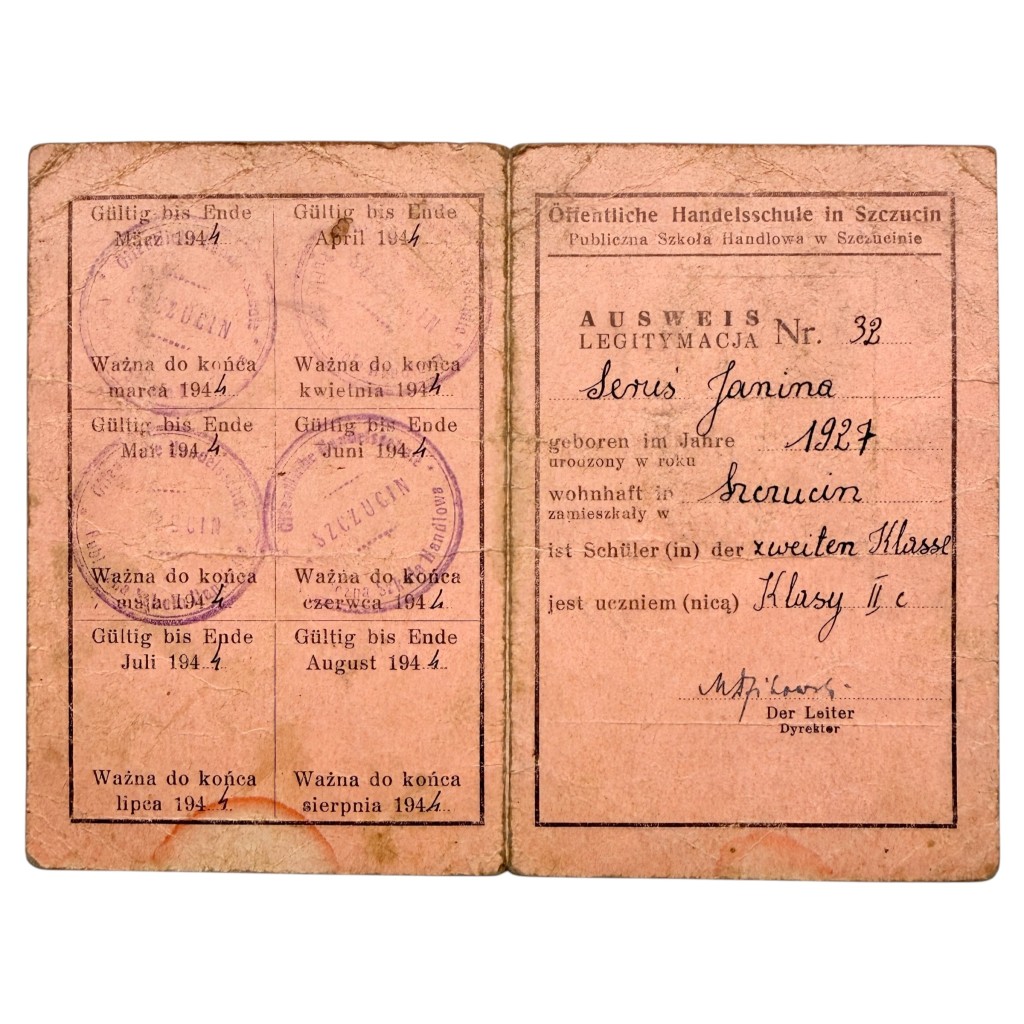 Gültig bis Ende
März 1944
Ważna do końca
marca 1944
Gültig bis Ende
April 1944
Ważna do końca
kwietnia 1944
Gültig bis Ende
Mai 1944
Ważna do końca
maja 1944
Gültig bis Ende
Juni 1944
Ważna do końca
czerwca 1944
Gültig bis Ende
Juli 1944
Ważna do końca
lipca 1944
Gültig bis Ende
August 1944
Ważna do końca
sierpnia 1944
SZCZUCIN
SZCZUCIN
Handlowa
Öffentliche Handelsschule in Szczucin
Publiczna Szkoła Handlowa w Szczucinie
AUSWEIS
LEGITYMACJA Nr. 32
Seruś Janina
geboren im Jahre 1927
urodzony w roku
wohnhaft in Szczucin
zamieszkały w
ist Schüler (in) der zweiten Klasse
jest uczniem (nicą) Klasy II c
Der Leiter
Dyrektor